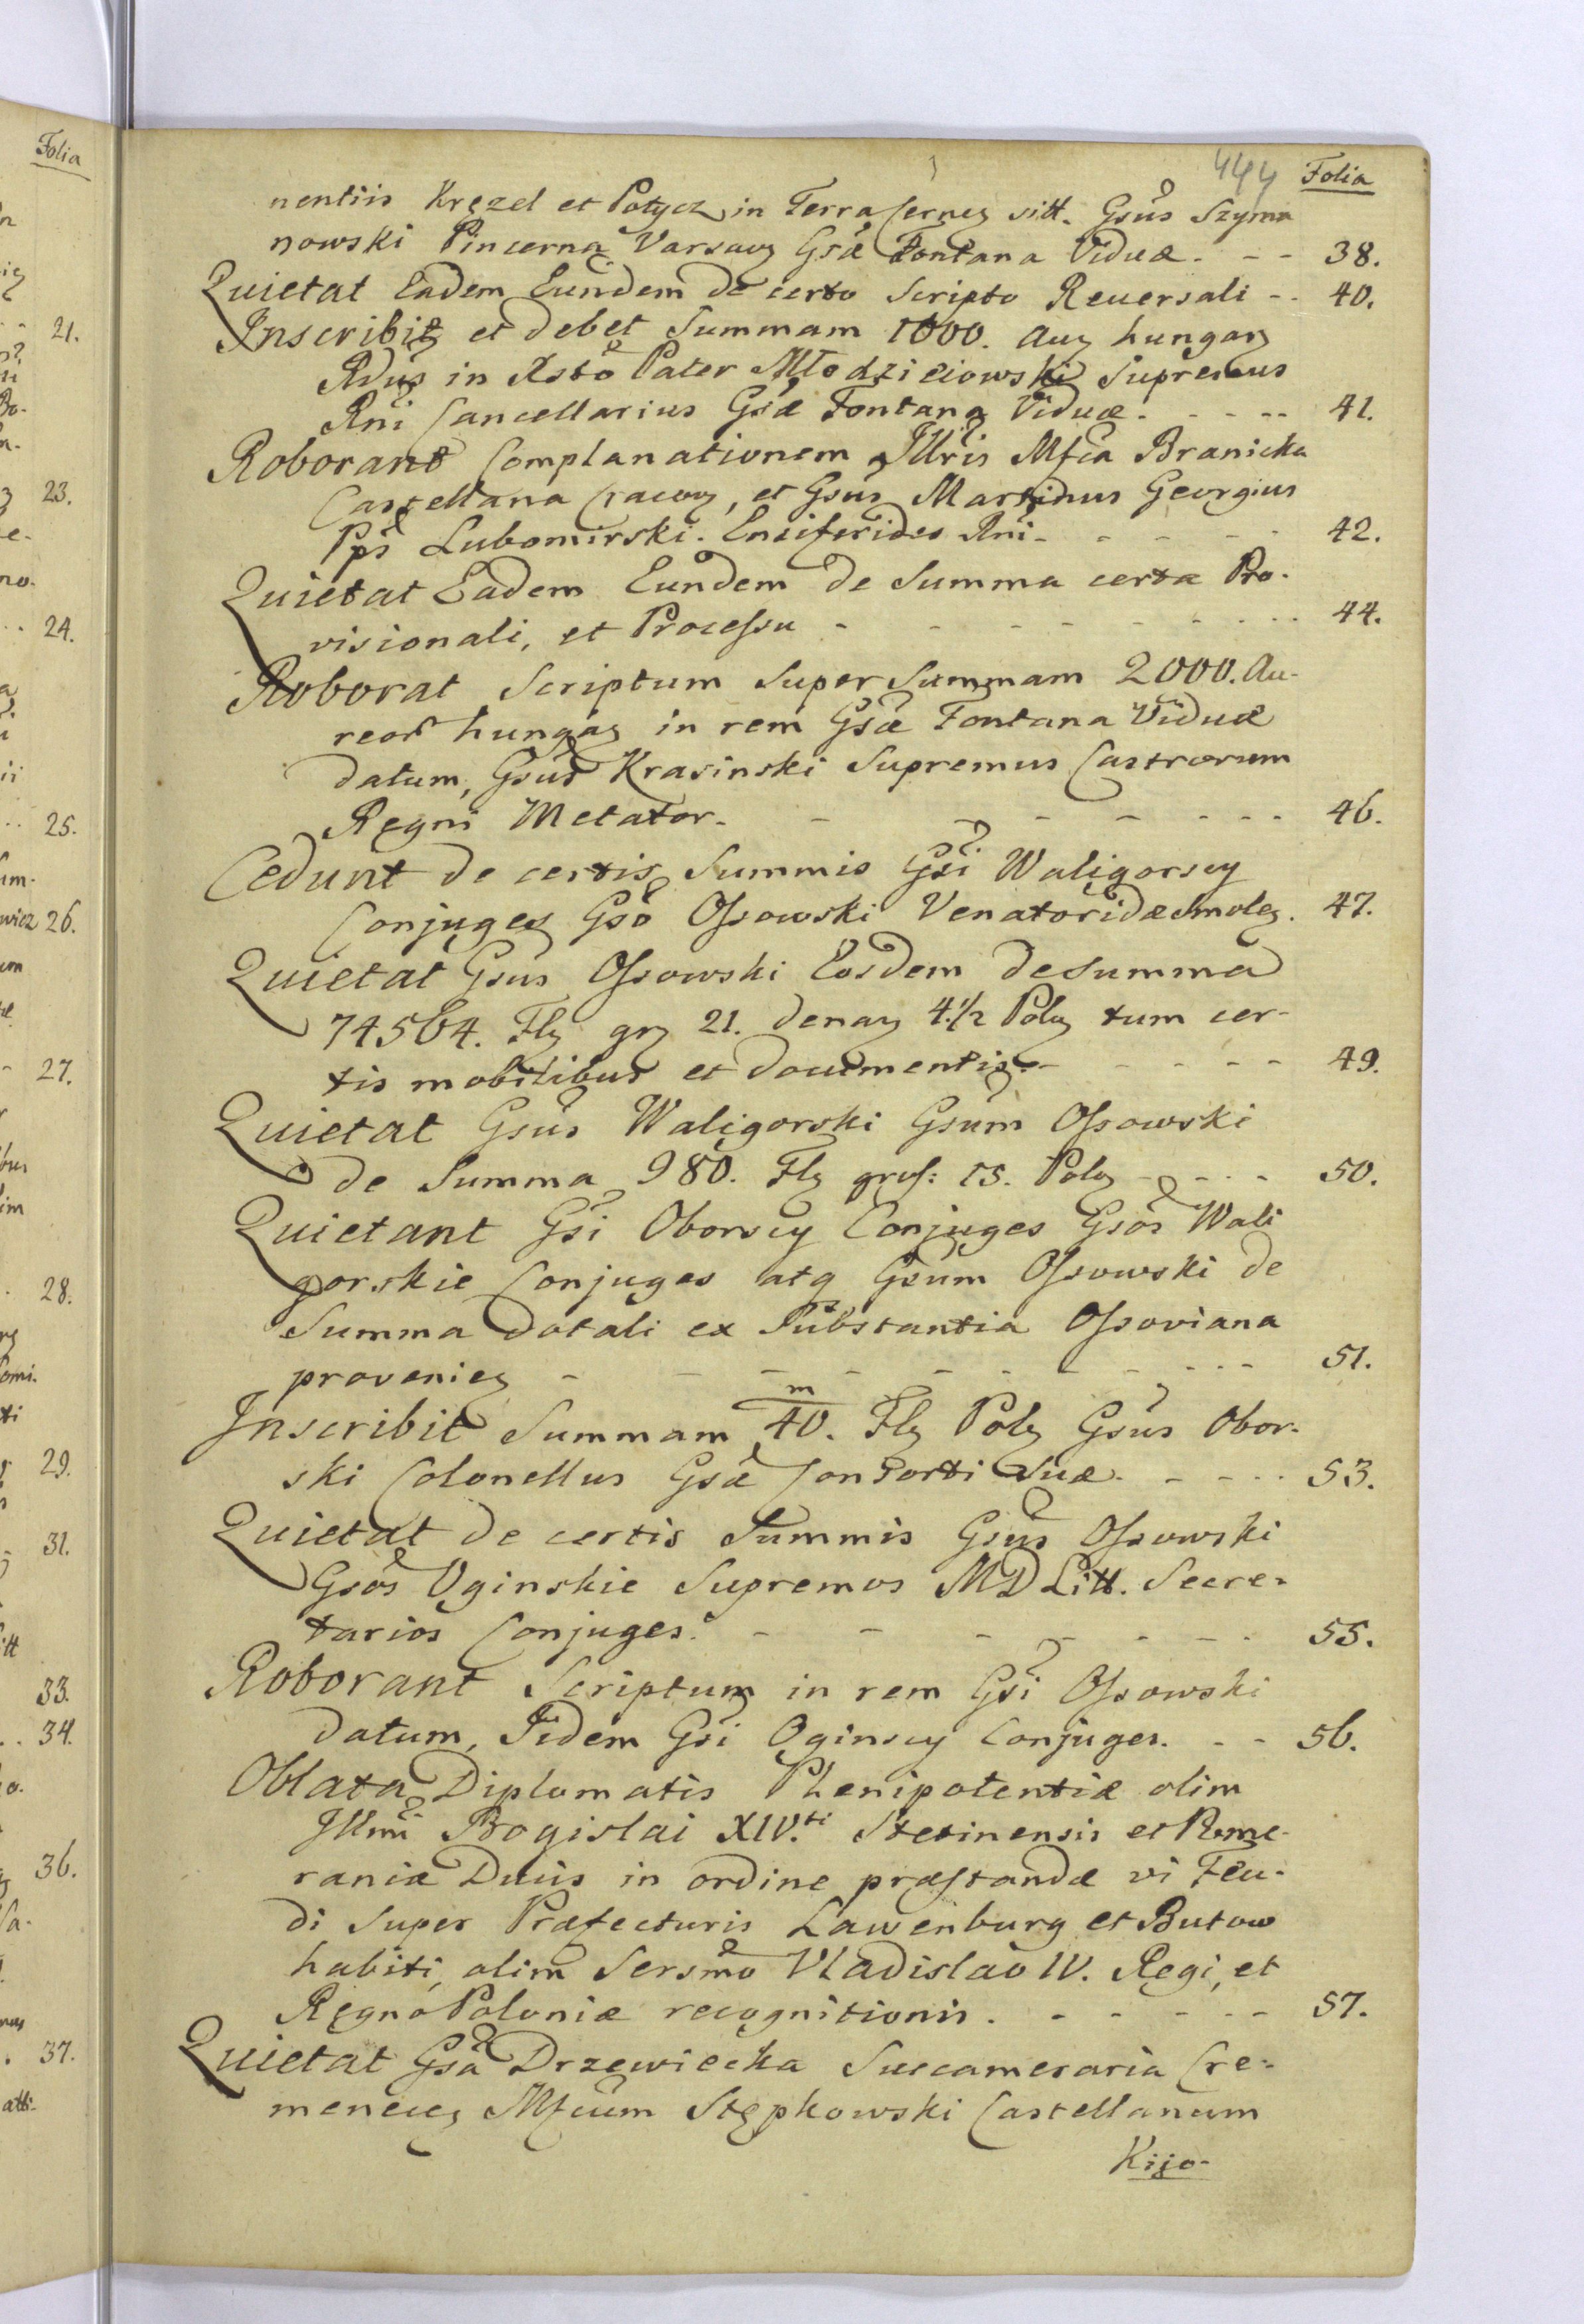 444 Folia
nentiis Kręzel et Potycz in Terra Cernen sitt. Gsus Szyma
nowski Pincerna Varsavz Gsæ Fontana Viduæ. - - 38.
Quietat Eadem Eundem de certo Scripto Reuersali - - 40.
Inscribit et debet Summam 1000. Auz hungarz
Rdus in Xsto Pater Młodzieiowski Supremus
Rni Cancellarius Gsæ Fontana Viduæ. - - - - 41.
Roborant Complanationem Illris Mfca Branicka
Castellana Cracovz, et Gsus Martinus Georgius
Pps Lubomirski. Ensiferides Rni - - - - - 42.
Quietat Eadem Eundem de Summa certa Pro-
visionali, et Processu - - - - - - - - 44.
Roborat Scriptum super Summam 2000. Au-
reor hungaz in rem Gsæ Fontana Viduæ
datum, Gsus Krasinski Supremus Castrorum
Regni Metator. - - - - - - - 46.
Cedunt de certis Summis Gsi Waligorscy
Conjuges Gso Ossowski Venatoridæ Smolez. 47.
Quietat Gsus Ossowski Eosdem de Summa
74564. Flz grz 21. denaz 4.1/2 Polz tum cer-
tis mobilibus et documentis - - - - - 49.
Quietat Gsus Waligorski Gsum Ossowski
de Summa 980. Flz gros: 15. Polz - - - - 50.
Quietant Gsi Oborscy Conjuges Gsos Wali
gorskie Conjuges atq Gsum Ossowski de
Summa dotali ex Substantia Ossoviana
proveniez - - - - - - - - - 51.
Inscribit Summam m/40. Flz Polz Gsus Obor-
ski Colonellus Gsæ Consorti Suæ. - - - - 53.
Quietat de certis Summis Gsus Ossowski
Gsos Oginskie Supremos MD Litt. Secre-
tarios Conjuges. - - - - - - 55.
Roborant Scriptum in rem Gsi Ossowski
datum, Iidem Gsi Oginscy Conjuges. - - 56.
Oblata Diplomatis Plenipotentiæ olim
Illmi Bogislai XIV.ti Stetinensis et Pome-
raniæ Ducis in ordine præstandæ vi Feu-
di super Præfecturis Lawenburg et Butow
habiti, olim Sersmo Vladislao IV. Regi, et
Regno Poloniæ recognitionis. - - - - - 57.
Quietat Gsa Drzewiecka Succameraria Cre-
menecz Mfcum Stępkowski Castellanum
Kijo-